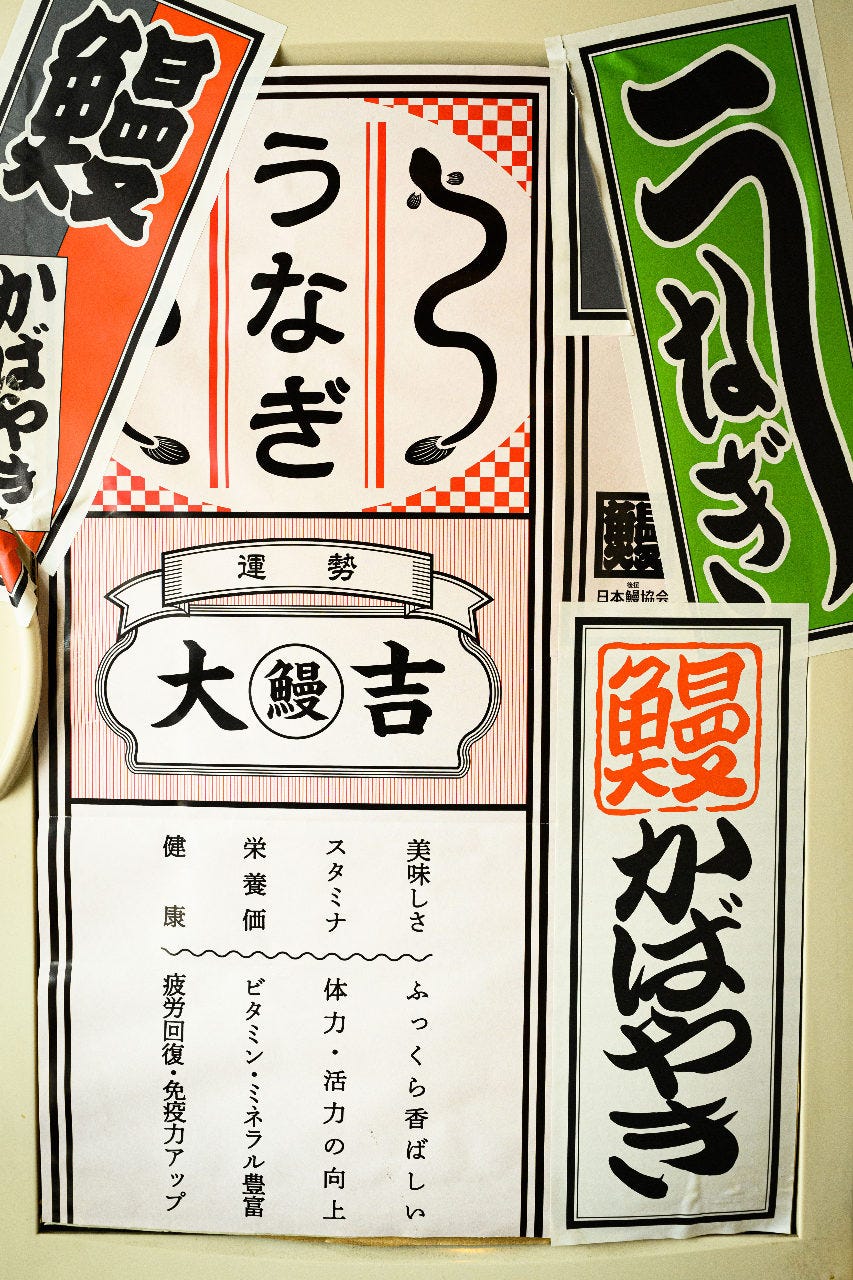 鰻
かばやき
うなぎ
運勢
大鰻吉
美味しさ
ふっくら香ばしい
スタミナ
体力・活力の向上
栄養価
ビタミン・ミネラル豊富
健康
疲労回復・免疫力アップ
うなぎ
鰻
後援
日本鰻協会
鰻
かばやき